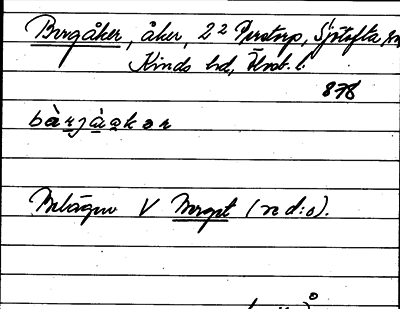 Bergåker, åker, 2² Perstorp, Sjötofta sn,
Kinds hd, Älvsb. l.
878
Belägen V Berget (se d:o).